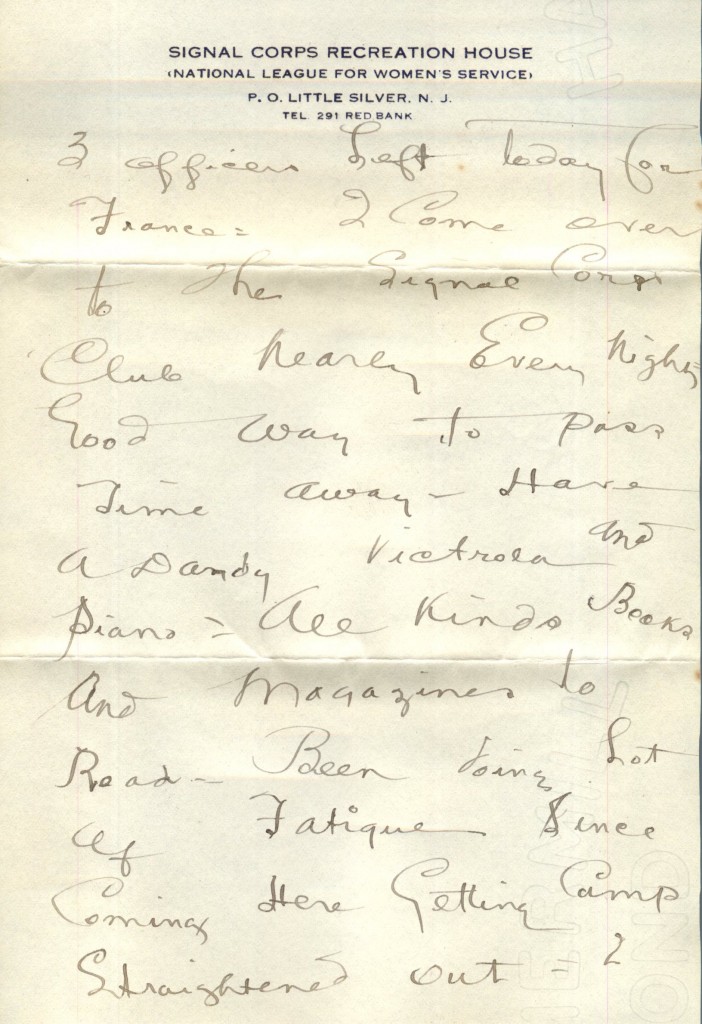 SIGNAL CORPS RECREATION HOUSE
(NATIONAL LEAGUE FOR WOMEN'S SERVICE)
P. O. LITTLE SILVER, N. J.
TEL. 291 RED BANK
3 officers Left Today for
France = I Come over
to The Signal Corps
Club Nearly Every Night
Good Way to pass
Time away - Have
a Dandy Victrola And
piano = All Kinds Books
And Magazines to
Read - Been doing Lot
of Fatigue Since
Coming Here Getting Camp
Straightened out = I